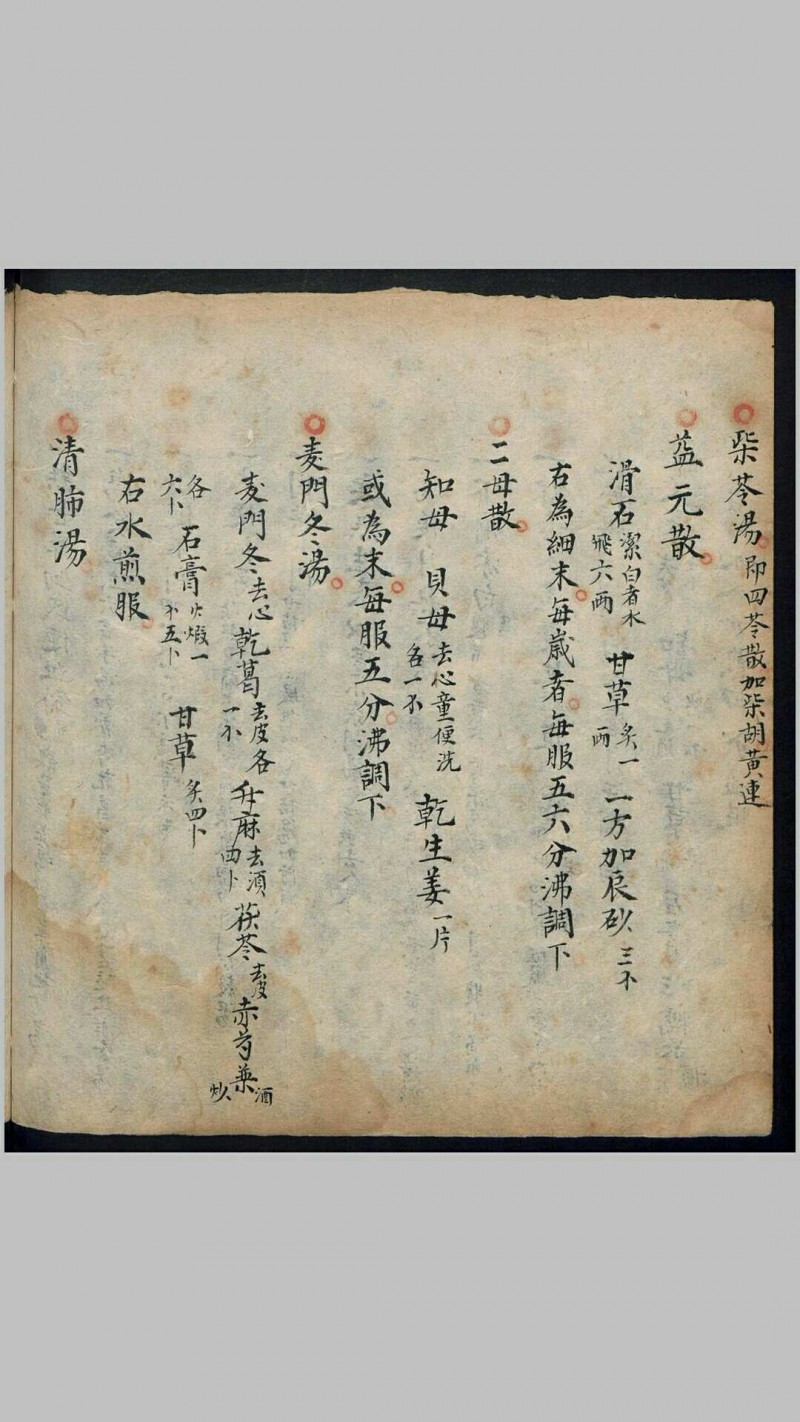 柴苓湯即四苓散加柴胡黄連
益元散
滑石潔白者水飛六兩 甘草炙一兩 一方加辰砂三不
右為細末每歲者每服五六分沸調下
二母散
知母 貝母去心童便洗各一不 乾生姜一片
或為末每服五分沸調下
麦門冬湯
麦門冬去心乾葛去皮各一不 升麻去須四卜 茯苓去皮赤芍薬酒炒
各六卜 石膏火煅一不五卜 甘草炙四卜
右水煎服
清肺湯